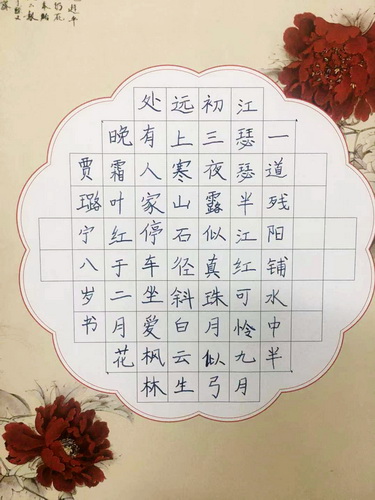 一道残阳铺水中半
江瑟瑟半江红可怜九月
初三夜露似真珠月似弓
远上寒山石径斜白云生
处有人家停车坐爱枫林
晚霜叶红于二月花
贾璐宁八岁书